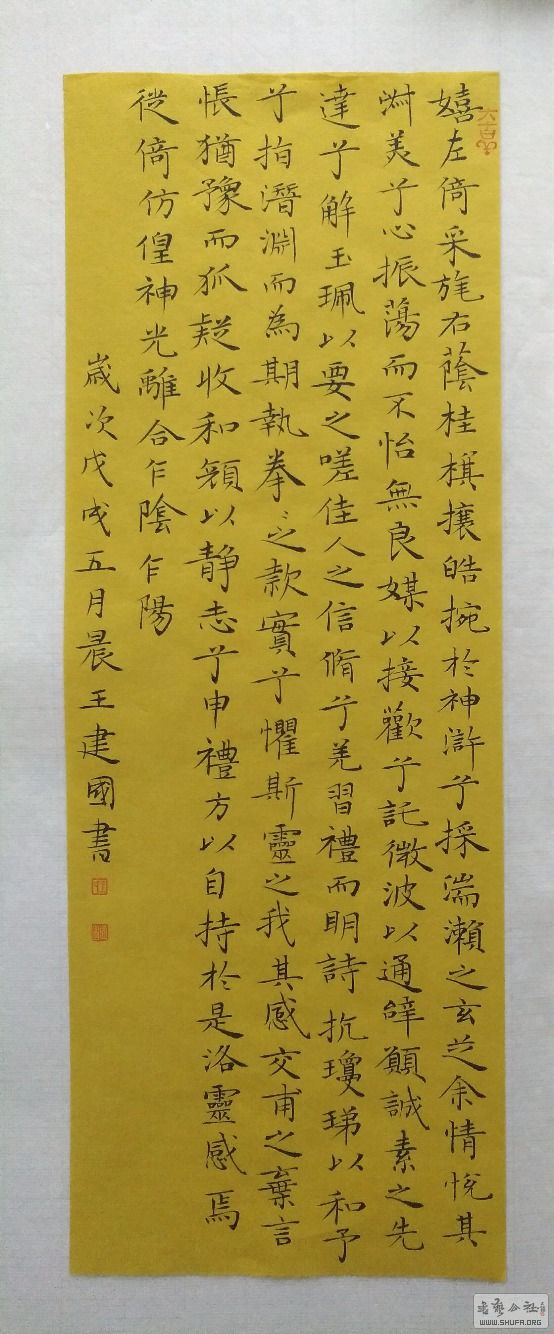 嬉左倚采旄右蔭桂棋攘皓捥於神滸兮採湍瀨之玄芝余情悅其
淑美兮心振蕩而不怡無良媒以接歡兮託微波以通辝願誠素之先
達兮解玉珮以要之嗟佳人之信脩兮羌習禮而明詩抗瓊珶以和予
兮指潛淵而為期執拳〻之款實兮懼斯靈之我其感交甫之棄言
悵猶豫而狐疑收和顏以靜志兮申禮方以自持於是洛靈感焉
徙倚仿偟神光離合乍陰乍陽
歲次戊戌五月晨王建國書
WWW.SHUFA.ORG